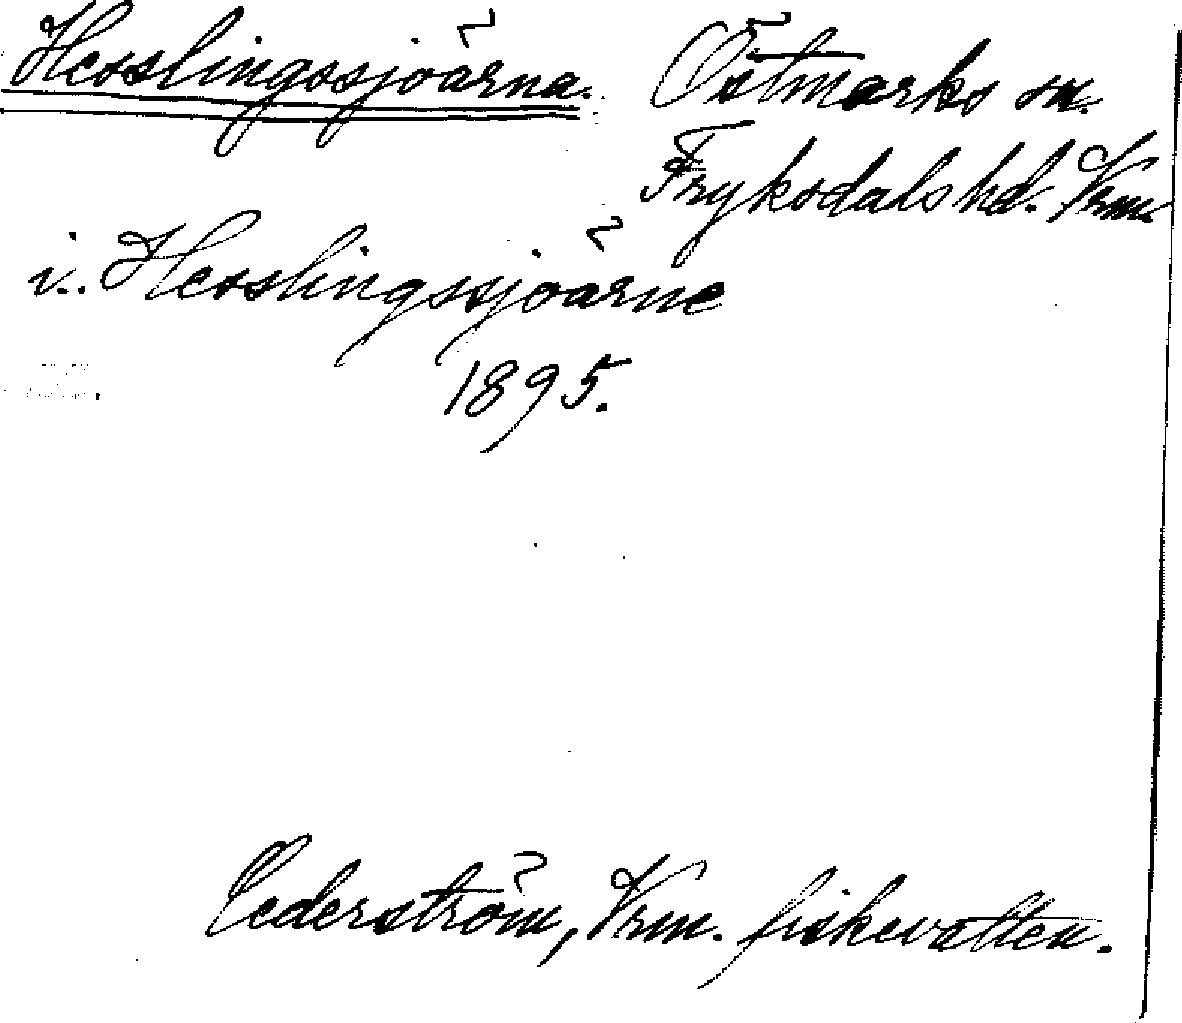 Hesslingssjöarna. Östmarks sn.
Fryksdals hd. Vrm.
i.. Hesslingssjöarne
1895.
Cederström, Vrm. fiskevatten.